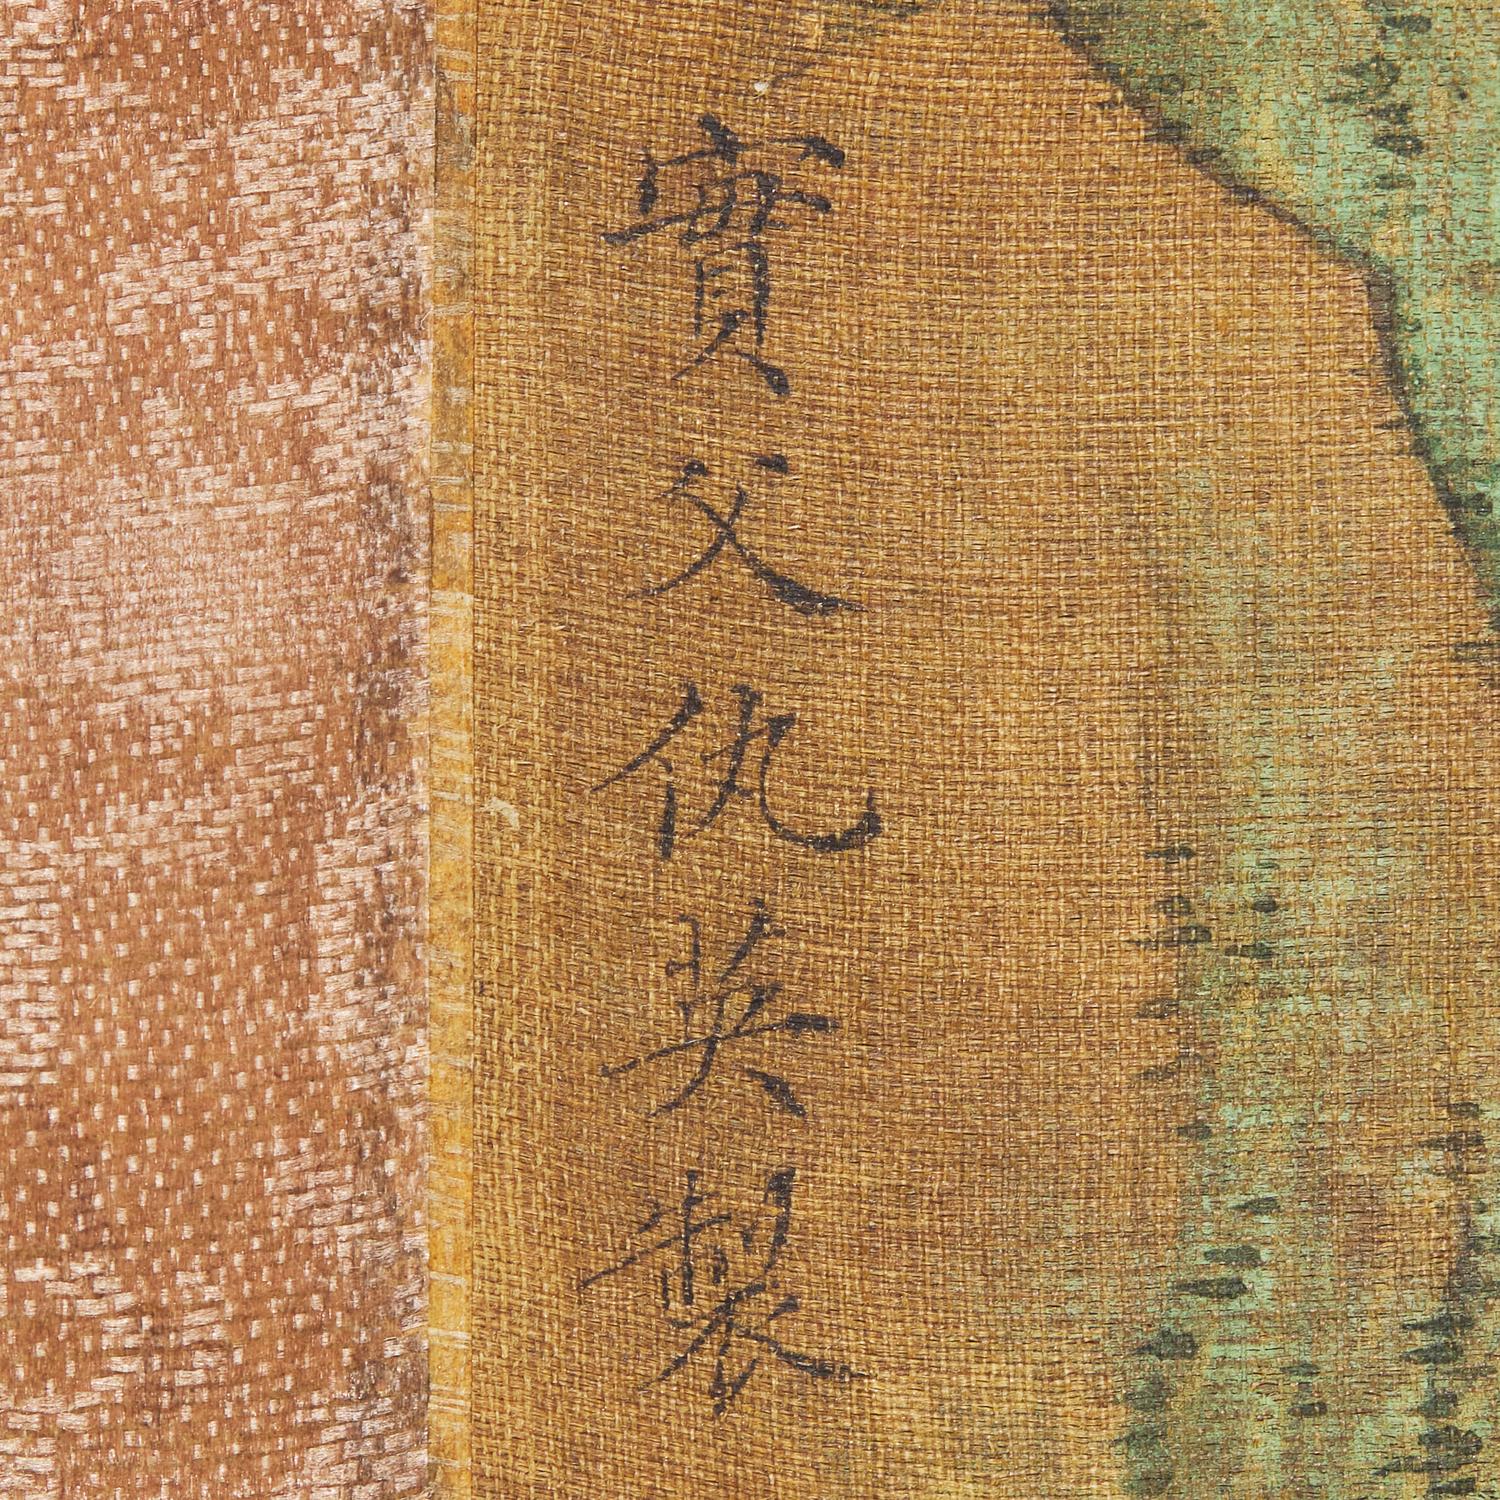 實父仇英製